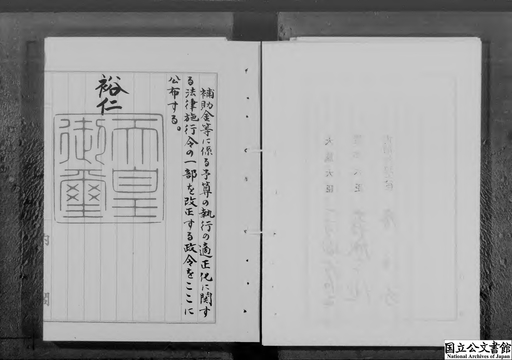 補助金等に係る予算の執行の適正化に関す
る法律施行令の一部を改正する政令をここに
公布する。
裕仁
天皇
御璽
内閣
国立公文書館
National Archives of Japan